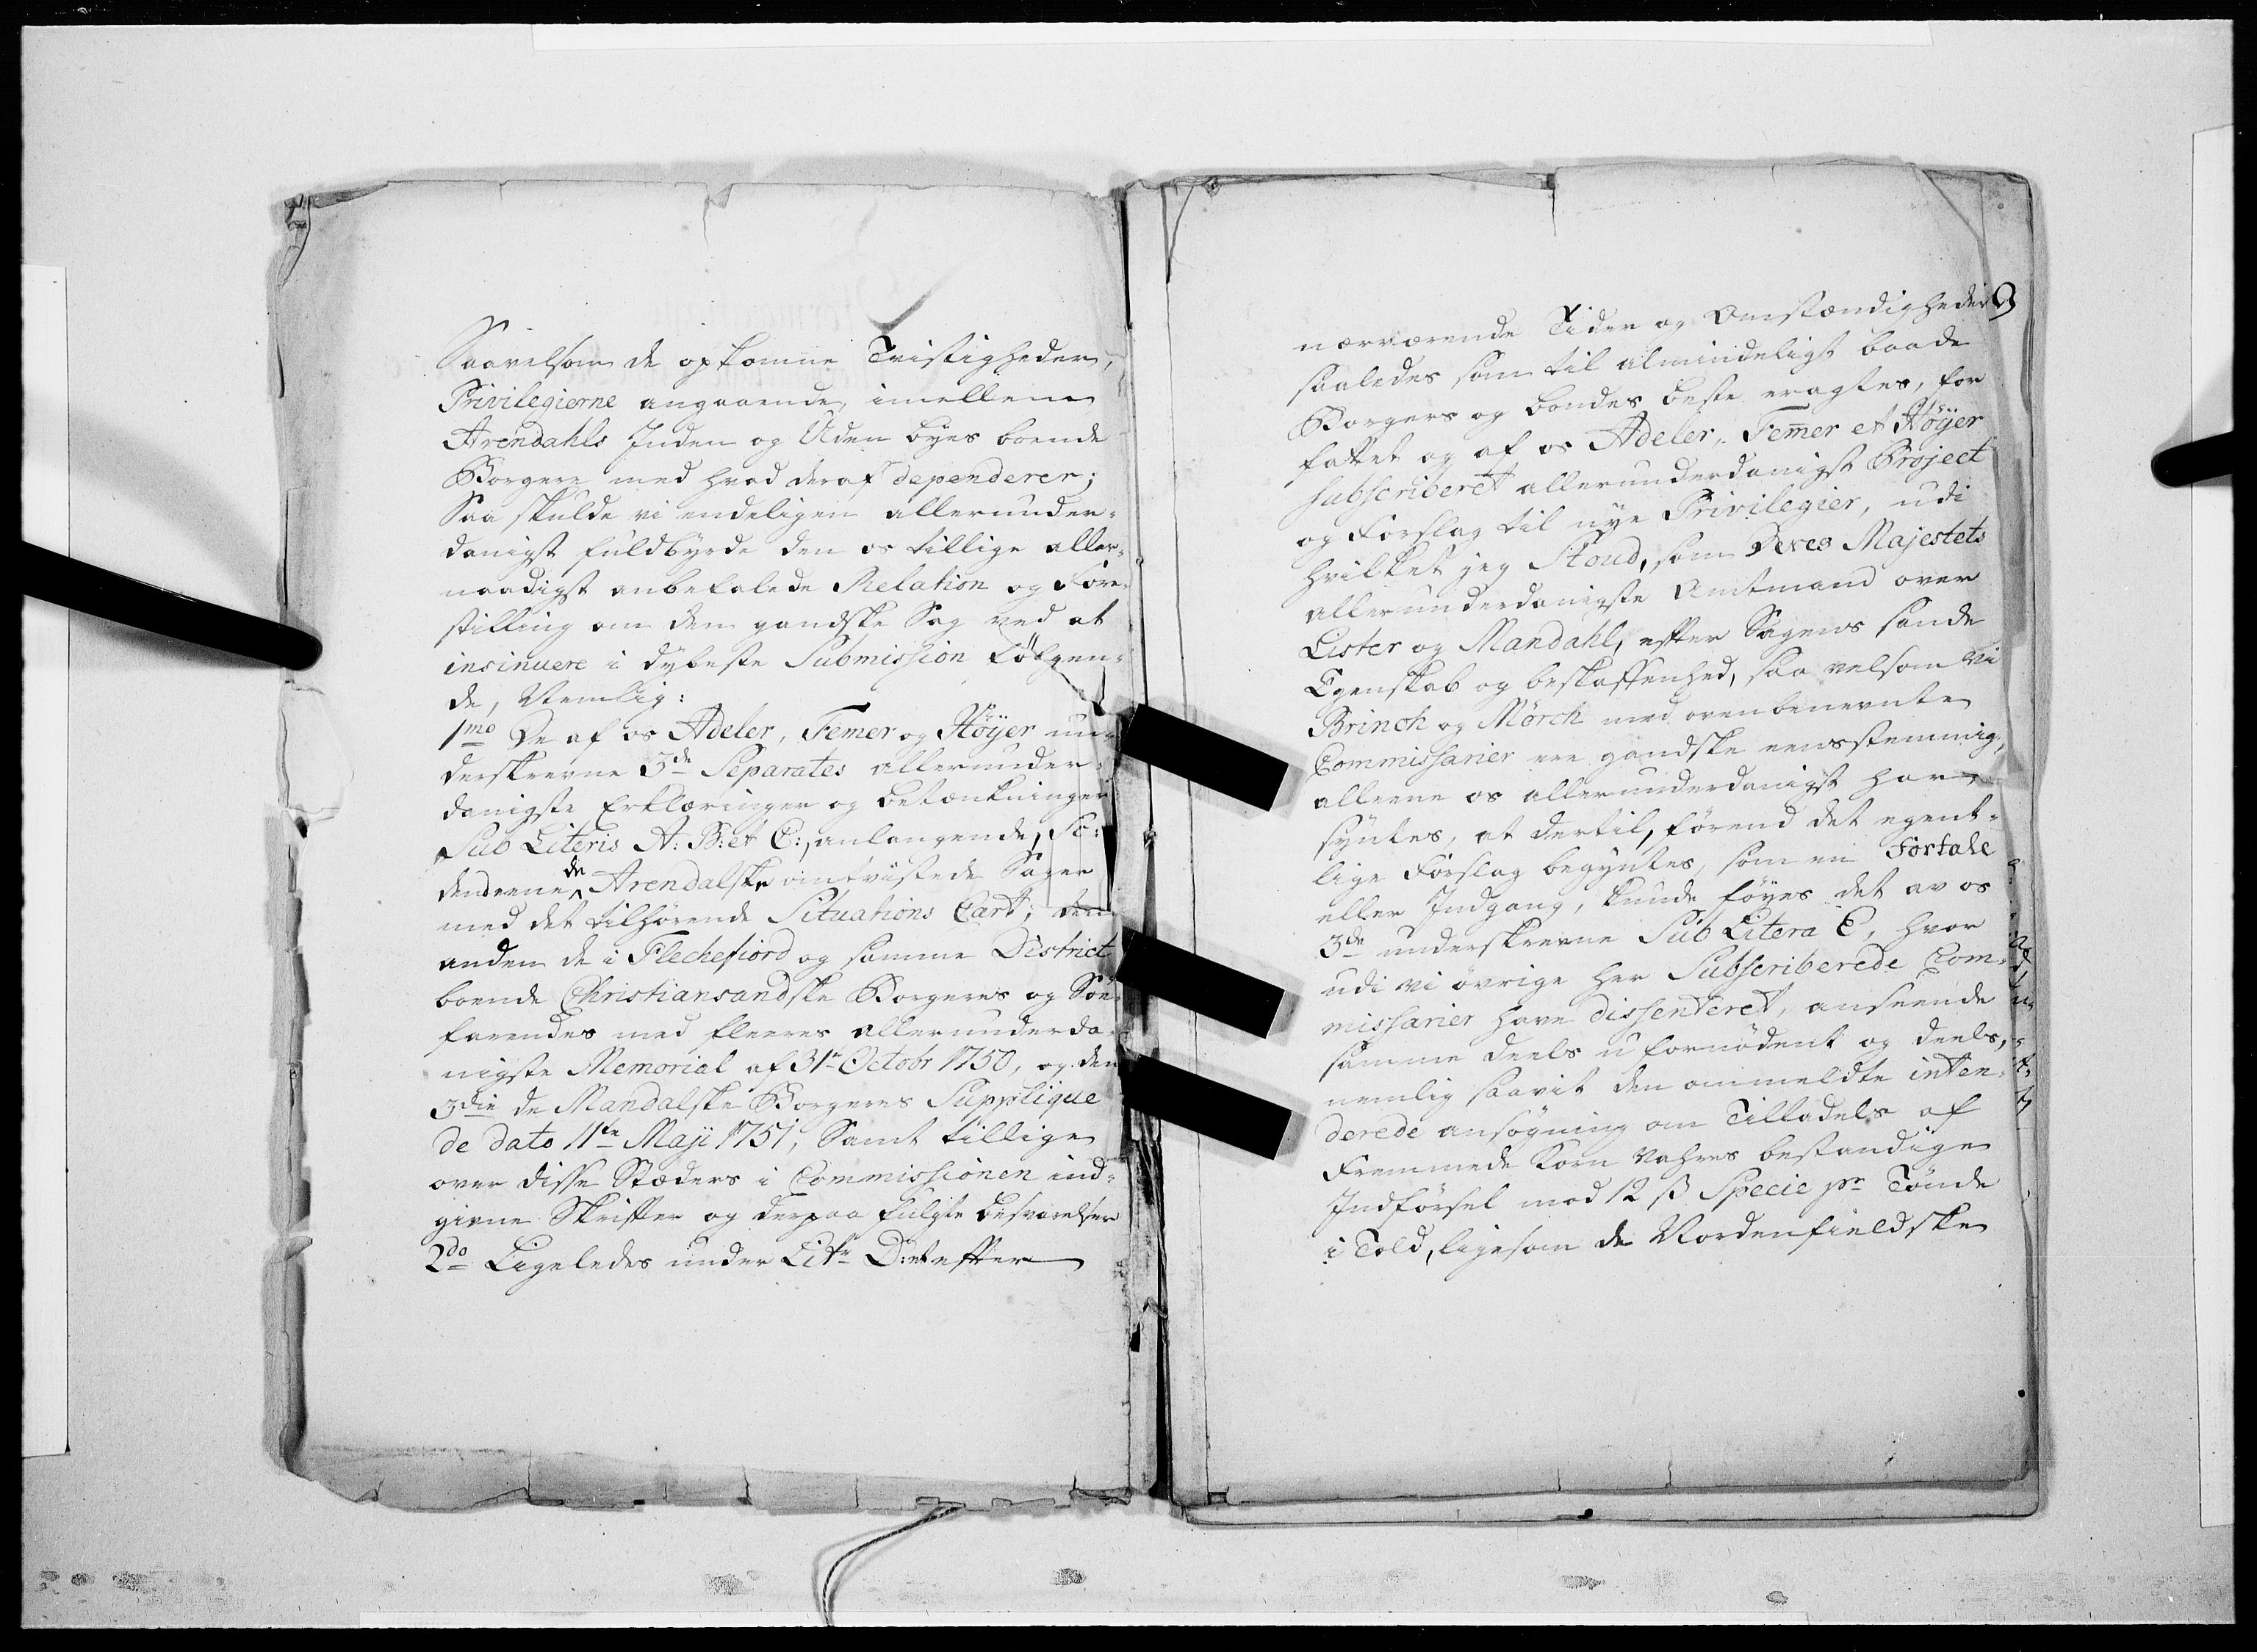 Saavelsom de opkomne Tvistigheder,
Privilegierne angaaende, imellem
Arendahls Inden og Uden byes boende
Borgere med hvad deraf dependerer;
Saa skulde vi endeligen allerunder-
danigst fuldbyrde den os tillige aller-
naadigst anbefalede Relation og Fore-
stilling om den gandske Sag ved at
insinuere i dybeste Submission følgen-
de, Nemlig:
1mo De af os Adeler, Femer og Höÿer un-
derskrevne 3de Separates allerunder-
danigste Erklæringer og betænkninger
Sub Literis A: B: et C:, anlangende,
de Arendalske omtvistede Sager
med det tilhörende Situations Cart; den
anden de i Flechefiord og samme District
boende Christiansandske Borgeres og Söe-
farendes med fleeres allerunderda-
nigste Memorial af 31te Octobr 1750, og den
3die de Mandalske Borgeres Supplique
de dato 11te Maji 1751, Samt tillige
over disse Stæders i Commissionen ind-
givne Skrifter og derpaa fulgte besvarelser
2do Ligeledes under Litr D: et efter
nærværende Tider og Omstændigheder
saaledes som til almindeligt baade
Borgers og bondes beste eragtes, for
fattet og af os Adeler, Fem̄er et Höÿer
subscriberet allerunderdanigst Project
og Forslag til nye Privilegier, udi
hvilket jeg Stoud, som Deres Majestets
allerunderdanigste Amtmand over
Lister og Mandahl, efter Sagens sande
Egenskab og beskaffenhed, saa velsom Vi
Brinch og Mörch med ovenbenevnte
Commissarier ere gandske eensstemmig,
alleene os allerunderdanigst har
syntes, at dertil, förend det egent-
lige Forslag begyntes, som en Fortale
eller Indgang, kunde föyes det av os
3de underskrevne Sub Litera E, hvor
udi vi övrige her Subscriberede Com-
missarier have dissenteret, anseende
samme deels ufornödent og deels,
nemlig saavit den ommeldte inten-
derede ansögning om Tilladelse af
Fremmede Korn Vahres bestandige
Indförsel mod 12 ß Specie pr Tönde
i Told, ligesom de Nordenfieldske